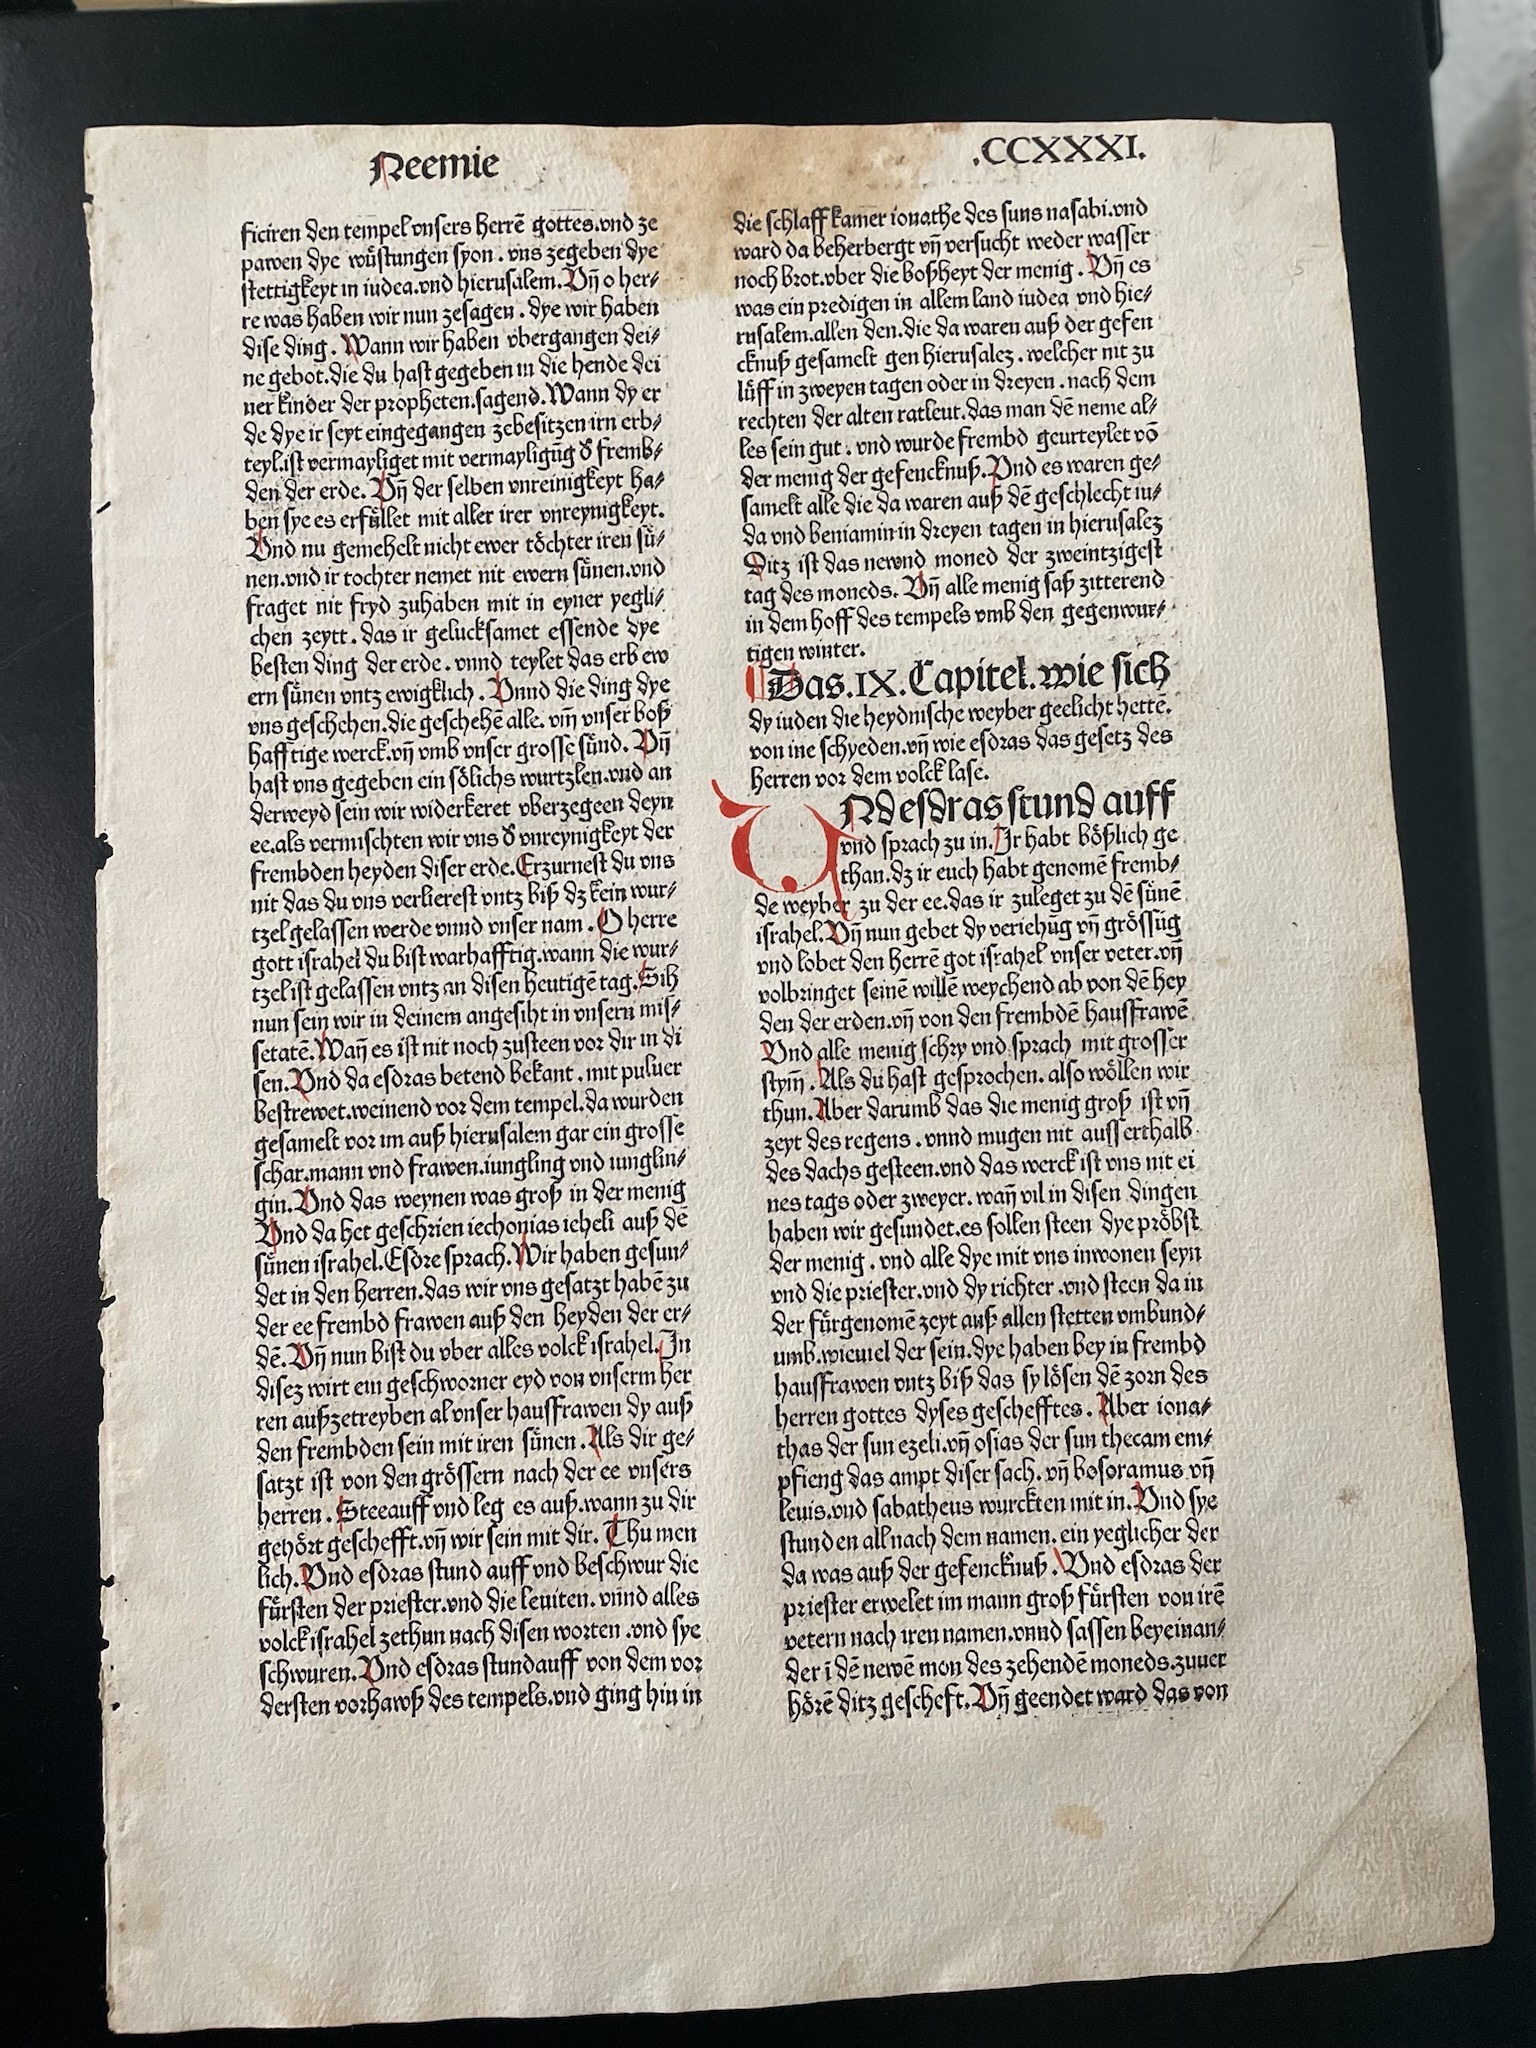 Neemie
.CCXXXI.
ficiren den tempel vnsers herrē gottes.vnd ze
pawen dye wuͤstungen syon . vns zegeben dye
stettigkeyt in iudea.vnd hierusalem.Vñ o her⸗
re was haben wir nun zesagen . dye wir haben
dise ding . Wann wir haben vbergangen dei⸗
ne gebot.die du hast gegeben in die hende dei
ner kinder der propheten.sagend.Wann dy er
de dye ir seyt eingegangen zebesitzen irn erb⸗
teyl.ist vermayliget mit vermayligūg δ fremb⸗
den der erde. Vñ der selben vnreinigkeyt ha⸗
ben sye es erfuͤllet mit aller irer vnreynigkeyt.
Vnd nu gemehelt nicht ewer toͤchter iren suͤ⸗
nen.vnd ir tochter nemet nit ewern suͤnen.vnd
fraget nit fryd zuhaben mit in eyner yegli⸗
chen zeytt . das ir gelucksamet essende dye
besten ding der erde . vnnd teylet das erb ew
ern suͤnen vntz ewigklich . Vnnd die ding dye
vns geschehen.die geschehē alle. vñ vnser boß
hafftige werck.vñ vmb vnser grosse suͤnd. Vñ
hast vns gegeben ein soͤlichs wurtzlen.vnd an
derweyd sein wir widerkeret vberzegeen deyn
ee.als vermischten wir vns δ vnreynigkeyt der
frembden heyden diser erde.Erzurnest du vns
nit das du vns verlierest vntz biß dz kein wur⸗
tzel gelassen werde vnnd vnser nam . O herre
gott israhel du bist warhafftig.wann die wur⸗
tzel ist gelassen vntz an disen heutigē tag.Sih
nun sein wir in deinem angesiht in vnsern mis⸗
setatē.Wañ es ist nit noch zusteen vor dir in di
sen.Vnd da esdras betend bekant . mit puluer
bestrewet.weinend vor dem tempel.da wurden
gesamelt vor im auß hierusalem gar ein grosse
schar.mann vnd frawen.iungling vnd iunglin⸗
gin.Vnd das weynen was groß in der menig
Vnd da het geschrien iechonias icheli auß dē
suͤnen israhel.Esdre sprach.Wir haben gesun⸗
det in den herren.das wir vns gesatzt habē zu
der ee frembd frawen auß den heyden der er⸗
dē.Vñ nun bist du vber alles volck israhel.In
disez wirt ein geschworner eyd von vnserm her
ren außzetreyben al vnser haussfrawen dy auß
den frembden sein mit iren suͤnen . Als dir ge⸗
satzt ist von den groͤssern nach der ee vnsers
herren . Steeauff vnd leg es auß.wann zu dir
gehoͤrt geschefft.vñ wir sein mit dir. Thu men
lich.Vnd esdras stund auff vnd beschwur die
fuͤrsten der priester.vnd die leuiten. vnnd alles
volck israhel zethun nach disen worten .vnd sye
schwuren.Vnd esdras stundauff von dem vor
dersten vorhawß des tempels.vnd ging hin in
die schlaffkamer ionathe des suns nasabi.vnd
ward da beherbergt vñ versucht weder wasser
noch brot.vber die boßheyt der menig . Vñ es
was ein predigen in allem land iudea vnd hie⸗
rusalem.allen den.die da waren auß der gefen
cknuß gesamelt gen hierusalez . welcher nit zu
luͤff in zweyen tagen oder in dreyen . nach dem
rechten der alten ratleut.das man dē neme al⸗
les sein gut . vnd wurde frembd geurteylet vō
der menig der gefencknuß.Vnd es waren ge⸗
samelt alle die da waren auß dē geschlecht iu⸗
da vnd beniamin·in dreyen tagen in hierusalez
Ditz ist das newnd moned der zweintzigest
tag des moneds. Vñ alle menig saß zitterend
in dem hoff des tempels vmb den gegenwur⸗
tigen winter.
Das.IX.Capitel.wie sich
dy iuden die heydnische weyber geelicht hettē.
von ine schyeden.vñ wie esdras das gesetz des
herren vor dem volck lase.
VNd esdras stund auff
vnd sprach zu in.Ir habt boͤßlich ge
than.dz ir euch habt genomē fremb⸗
de weyber zu der ee.das ir zuleget zu dē suͤnē
israhel.Vñ nun gebet dy veriehūg vñ groͤssūg
vnd lobet den herrē got israhel vnser veter.vñ
volbringet seinē willē weychend ab von dē hey
den der erden.vñ von den frembdē haussfrawē
Vnd alle menig schry vnd sprach mit grosser
stym̃ . Als du hast gesprochen. also woͤllen wir
thun.Aber darumb das die menig groß ist vñ
zeyt des regens . vnnd mugen nit ausserthalb
des dachs gesteen.vnd das werck ist vns nit ei
nes tags oder zweyer. wañ vil in disen dingen
haben wir gesundet.es sollen steen dye proͤbst
der menig . vnd alle dye mit vns inwonen seyn
vnd die priester.vnd dy richter .vnd steen da in
der fuͤrgenomē zeyt auß allen stetten vmbund⸗
umb.wieuiel der sein.dye haben bey in frembd
haussfrawen vntz biß das sy loͤsen dē zorn des
herren gottes dyses geschefftes . Aber iona⸗
thas der sun ezeli.vñ osias der sun thecam em⸗
pfieng das ampt diser sach. vñ bosoramus vñ
leuis.vnd sabatheus wurckten mit in.Vnd sye
stunden all nach dem namen. ein yeglicher der
da was auß der gefencknuß .Vnd esdras der
priester erwelet im mann groß fuͤrsten von irē
vetern nach iren namen.vnnd sassen beyeinan⸗
der ī dē newē mon des zehendē moneds.zuuer
hoͤrē ditz gescheft.Vñ geendet ward das von